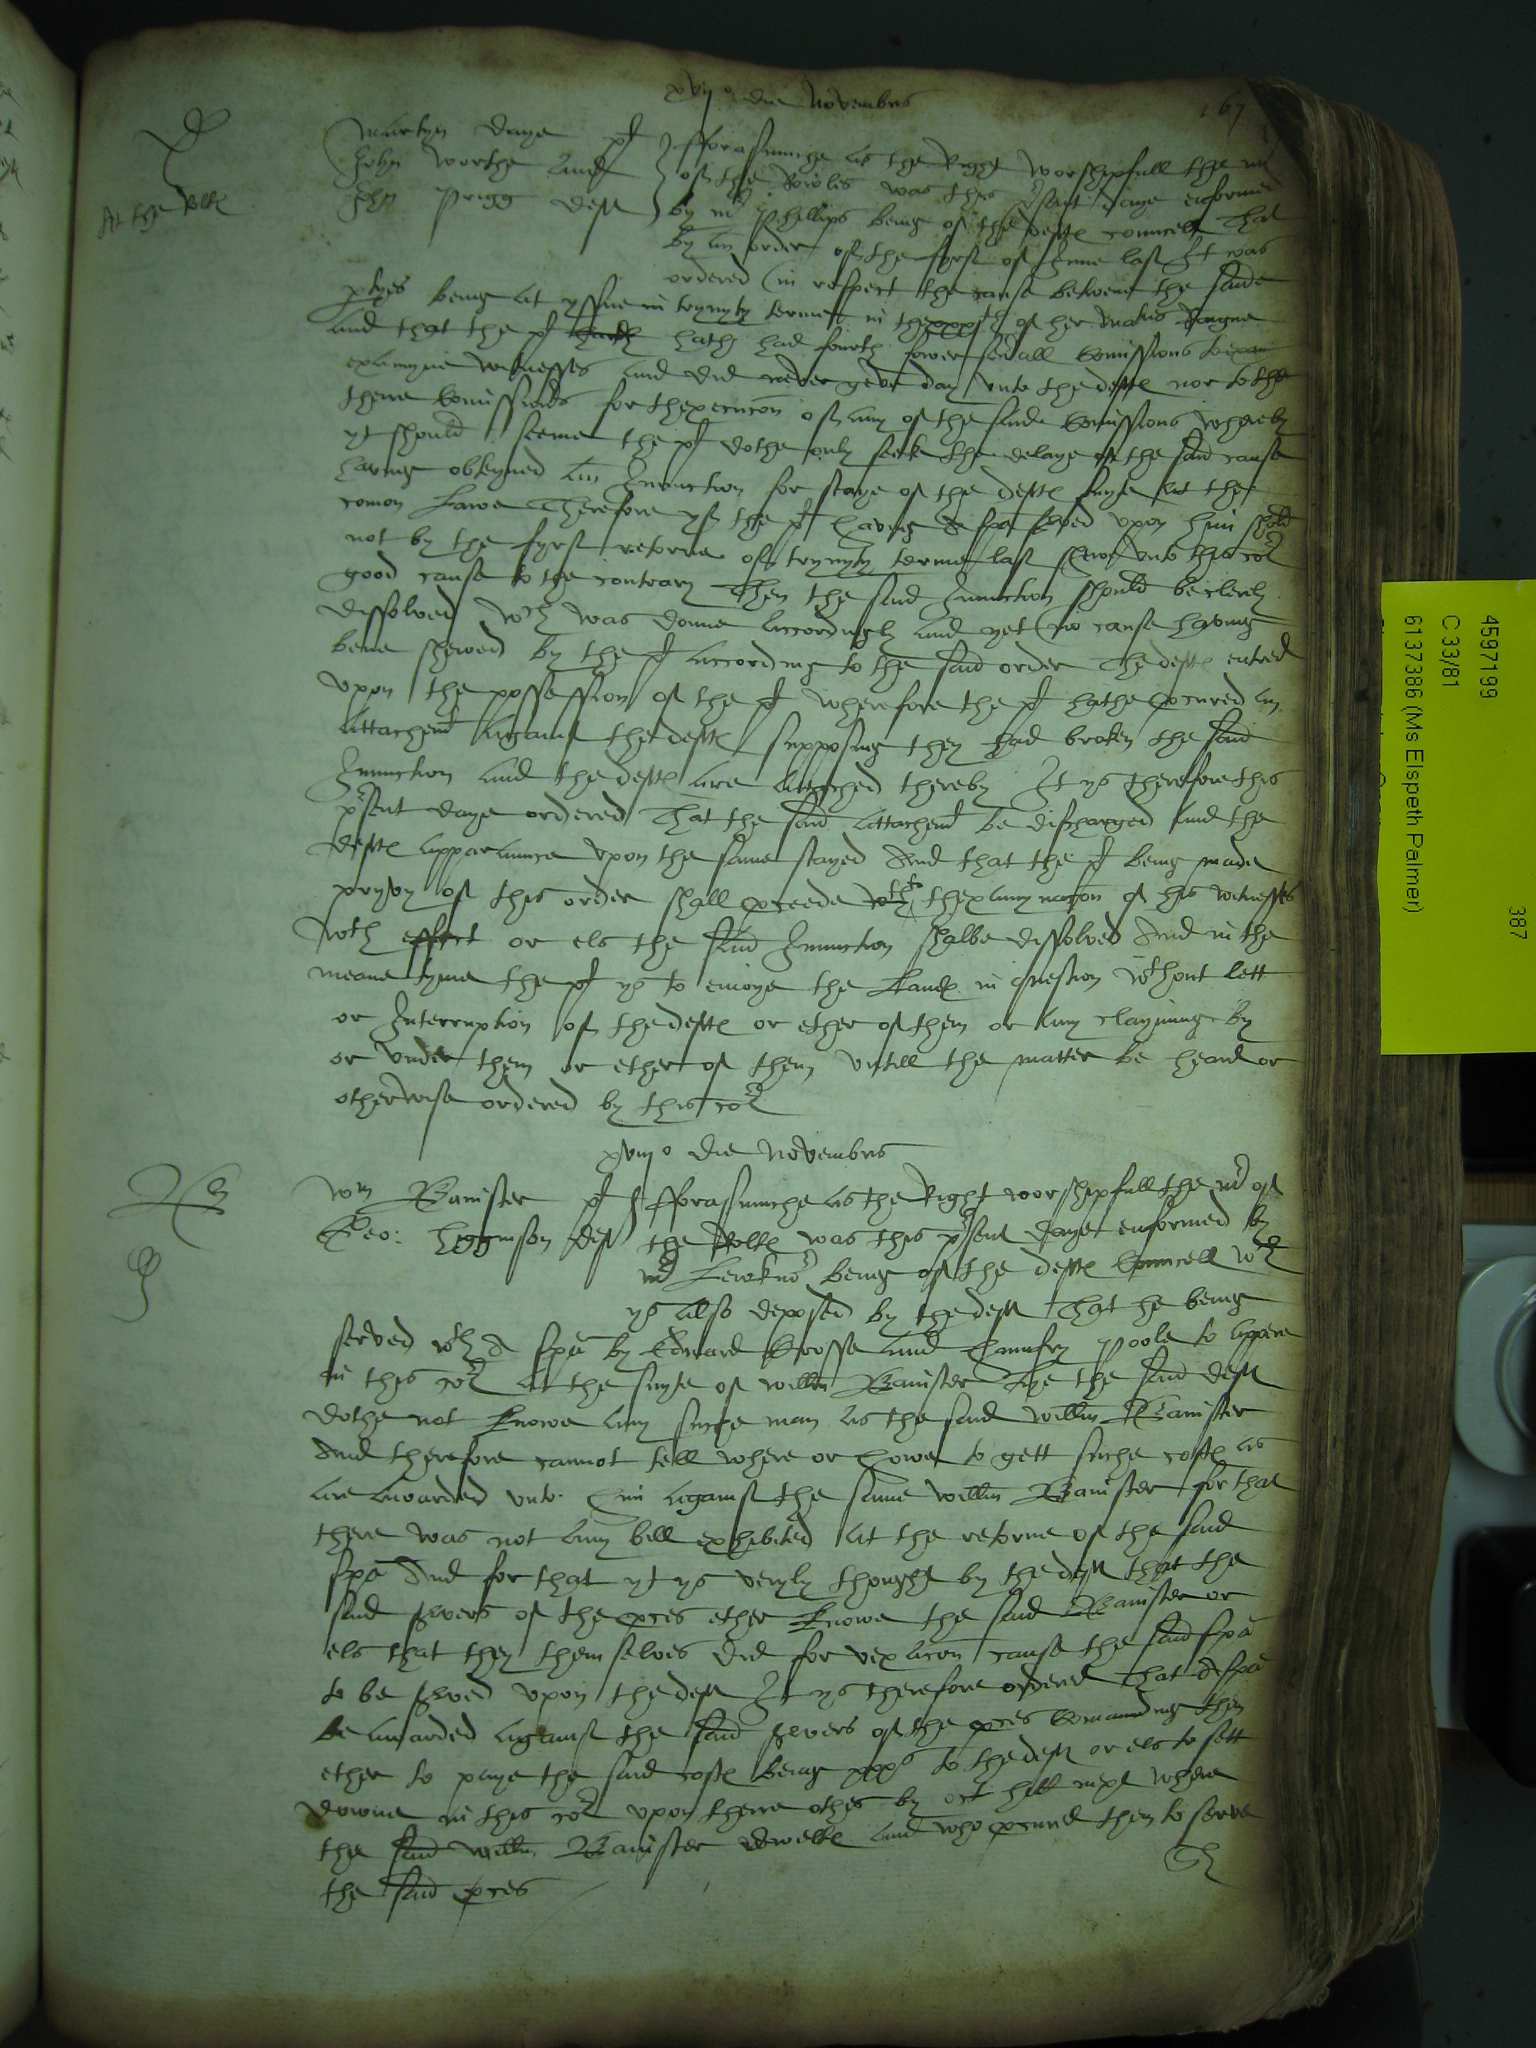 xvijo die Novembris
167
Martyn Daye pl
John Worthe and
John Prigg deft
At the Rolls
fforasmuche as the Right worshipfull the mr
of the Rowles was this psent daye enformed
by mr Phillips being of the deftes councell That
by an order of the fyrst of June last It was
ordered in respect the cause betwene the saide
ptyes being at yssue in trynyty terme in the xxxth of her maties Raigne
and that the pl hath had fourth fower seuall Comissions to
examyne wytnesses and did never geve day unto the deftes nor to the
there Comissioners for thexecucon of any of the said Comissions whereby
yt should seeme the pl dothe only seeke the delaye of the said cause
having obteyned an Iniunction for staye of the deftes suyte at the
comon Lawe Therefore yf the pl having a spa served upon him shold
not by the fyrst retorne of trynyty terme last shew unto this cort
good cause to the contrary Then the said Iniunction should be clerely
dissolved wch was donne accordingly and yet no cause having
bene shewed by the pl according to the said order The deftes entred
upon the possession of the pl wherefore the pl hathe pcured an
attachemt against the deftes supposing they had broken the said
Iniunction and the deftes are attached thereby It ys therefore this
psent daye ordered That the said attachemt be discharged and the
deftes apparaunce upon the same stayed And that the pl being made
pryvy of this order shall pceede to thexamynacon of his witnesses
wth effect or els the said Iniunction shalbe dissolved And in the
meane tyme the pl ys to enioye the Landes in question wthout lett
or Interruption of the deftes or ether of them or any clayming by
or under them or ether of them untill the matter be heard or
otherwise ordered by this cort
xviijo die Novembris
Wm Banister pl
Geo: Higginson deft
fforasmuche as the Right worshipfull the mr of
the Rolles was this psent daye enformed by
mr Lewknor being of the deftes Councell wch
ys also deposed by the deft That he being
served wth a spa by Edward Crosse and Humfry Poole to appere
in this cort at the suyte of Willm Banister He the said deft
dothe not knowe any suche man as the said Willm Banister
And therefore cannot tell where or howe to gett suche costes as
are awarded unto him against the same Willm Banister for that
there was not any bill exhibited at the retorne of the said
spa And for that yt ys veryly thought by the deft that the
said servers of the pces ether knowe the said Banister or
els that they themselves did for vexacon cause the said spa
to be served upon the deft It ys therefore ordered That A spa
be awarded against the said servers of the pces Comaunding them
ether to paye the said costes being xxxs to the deft or els to sett
downe in this cort upon there othes by oct hill next where
the said Willm Banister dwelles and who pcured them to serve
the said pces
4597199
C 33/81
6137386 (Ms Elspeth Palmer)
387